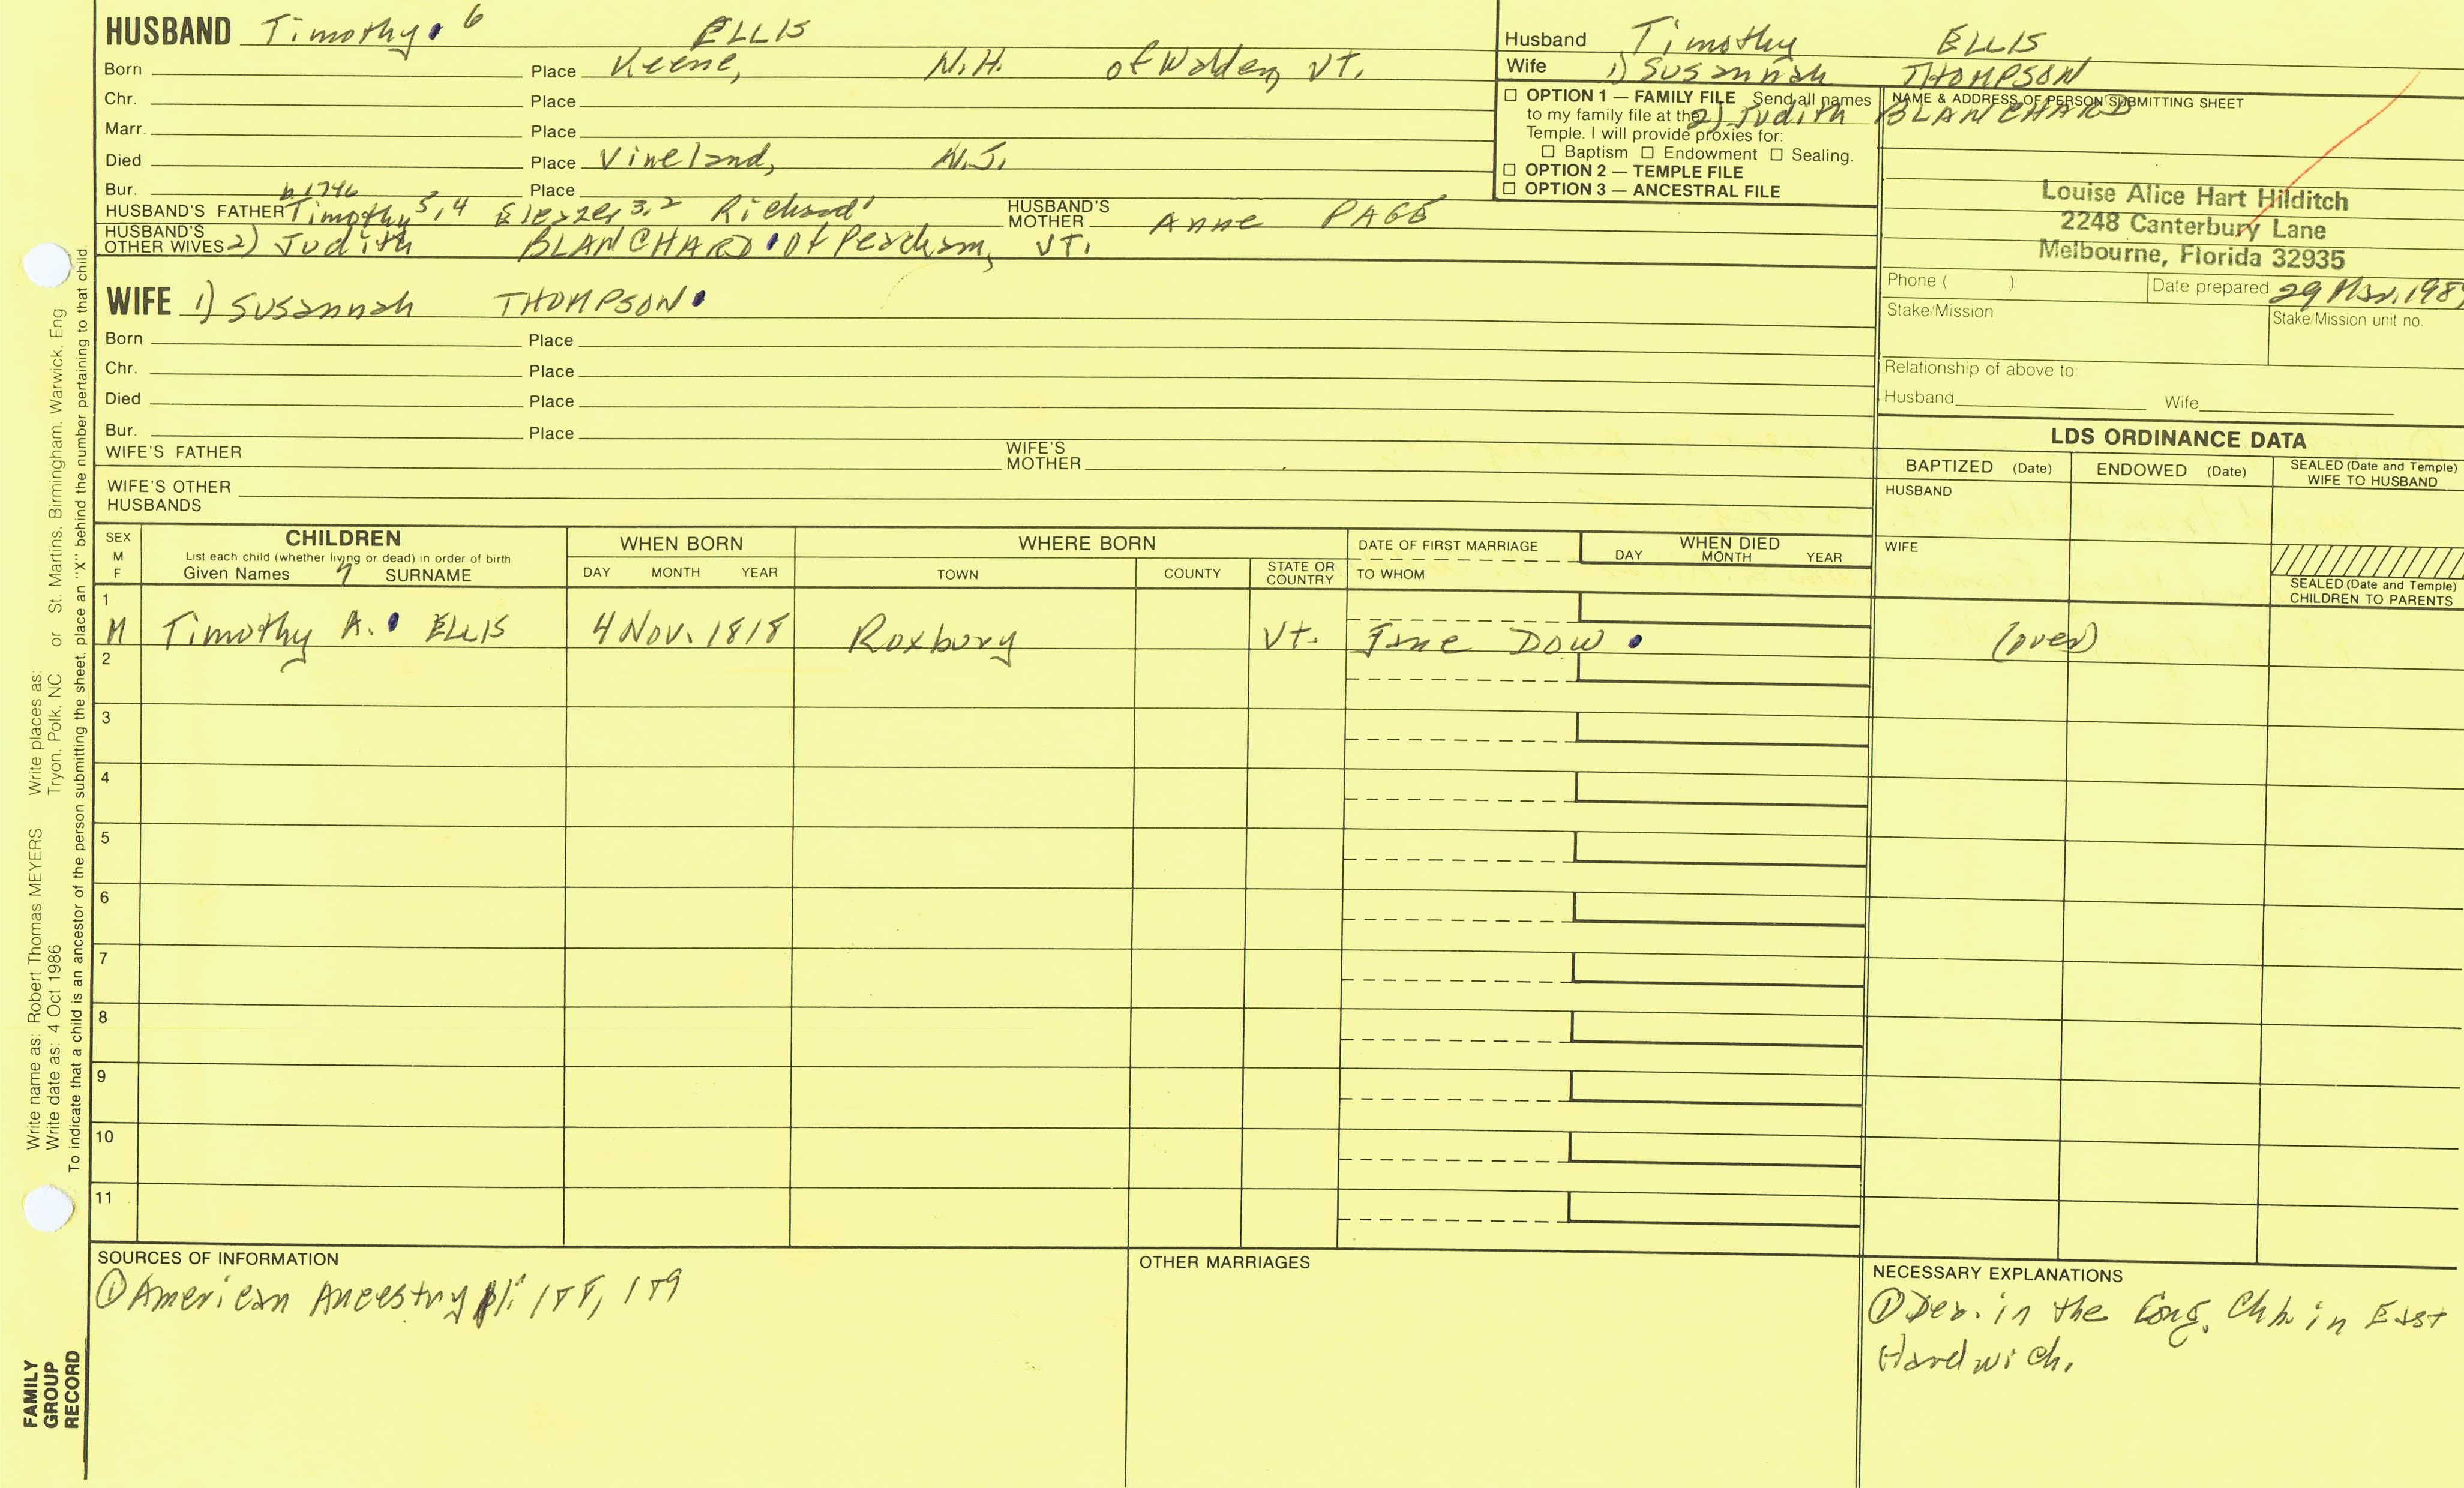 HUSBAND Timothy 6 ELLIS
Born Place Keene, N.H. of Walden, Vt.
Chr. Place
Marr. Place
Died Place Vineland, N.J.
Bur. Place
b 1746
HUSBAND'S FATHER Timothy 5,4 Eleazer 3,2 Richard 1 HUSBAND'S MOTHER Anne PAGE
HUSBAND'S OTHER WIVES 2) Judith BLANCHARD of Peacham, VT.
WIFE 1) Susannah THOMPSON
Born Place
Chr. Place
Died Place
Bur. Place
WIFE'S FATHER WIFE'S MOTHER
WIFE'S OTHER HUSBANDS
Husband Timothy ELLIS
Wife 1) Susannah THOMPSON
2) Judith BLANCHARD
OPTION 1 — FAMILY FILE Send all names
to my family file at the
Temple. I will provide proxies for:
Baptism Endowment Sealing.
OPTION 2 — TEMPLE FILE
OPTION 3 — ANCESTRAL FILE
NAME & ADDRESS OF PERSON SUBMITTING SHEET
Louise Alice Hart Hilditch
2248 Canterbury Lane
Melbourne, Florida 32935
Phone ( ) Date prepared 29 Mar. 198
Stake/Mission Stake/Mission unit no.
Relationship of above to
Husband Wife
LDS ORDINANCE DATA
BAPTIZED (Date) ENDOWED (Date) SEALED (Date and Temple) WIFE TO HUSBAND
HUSBAND
WIFE
SEALED (Date and Temple)
CHILDREN TO PARENTS
SEX M F
CHILDREN
List each child (whether living or dead) in order of birth
Given Names 7 SURNAME
WHEN BORN
DAY MONTH YEAR
WHERE BORN
TOWN COUNTY STATE OR COUNTRY
DATE OF FIRST MARRIAGE
TO WHOM
WHEN DIED
DAY MONTH YEAR
1
M Timothy A. ELLIS 4 Nov. 1818 Roxbury Vt. Jane Dow (over)
2
3
4
5
6
7
8
9
10
11
SOURCES OF INFORMATION
① American Ancestry
OTHER MARRIAGES
NECESSARY EXPLANATIONS
① Dea. in the Cong. Chh. in East
Hardwich.
Write name as: Robert Thomas MEYERS Write places as:
Write date as: 4 Oct 1986 Tryon, Polk, NC or St. Martins, Birmingham, Warwick, Eng
To indicate that a child is an ancestor of the person submitting the sheet, place an "X" behind the number pertaining to that child.
FAMILY
GROUP
RECORD